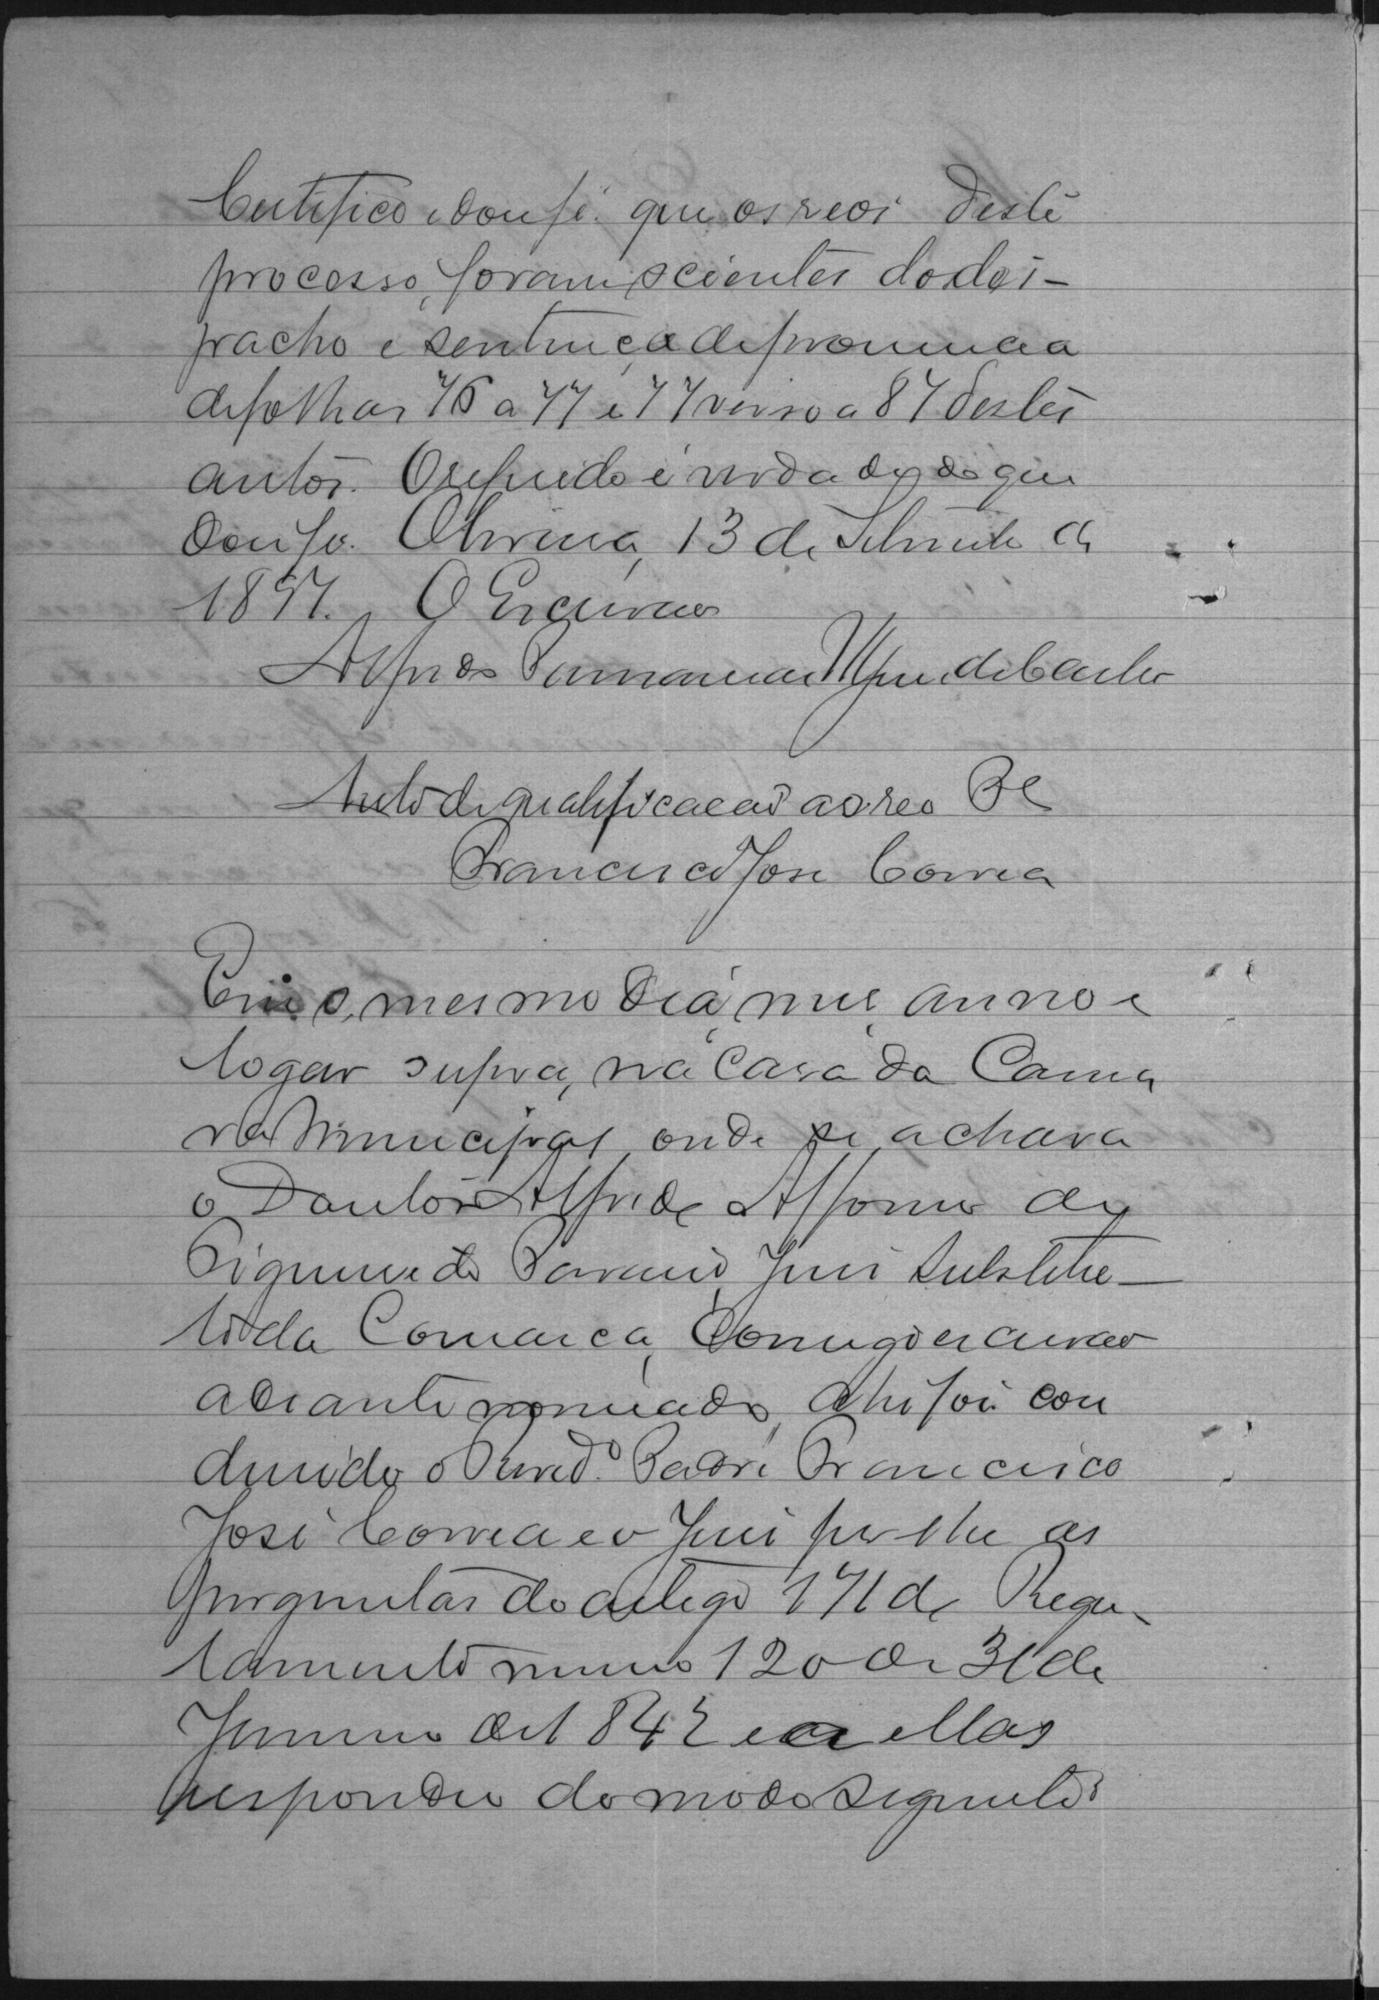 Certifico e dou fé que os reos deste
processo, foram scientes do des-
pacho e sentença de pronuncia
de folhas 76 a 77 e 77 verso a 87 destes
autos. O referido é verdade do que
dou fé. Oliveira, 13 de Setembro de
1897. O Escrivao
Alfredo Mendes Castro
Auto de qualificacao ao reo Pe
Francisco José Correa
Em o mesmo dia, mes, anno e
logar supra, na Casa da Cama
ra Municipal onde se achava
o Doutor Alfredo Affonso de
Figueiredo Juis Substitu-
to da Comarca, Comigo escrivao
adiante nomeado, ahi foi con
dusido o Revd.º Padre Francisco
José Correa e o Juis fes lhe as
perguntas do artigo 171 do Regu-
lamento numero 120 de 31 de
Janeiro de 1842 e a ellas
respondeu do modo seguinte: